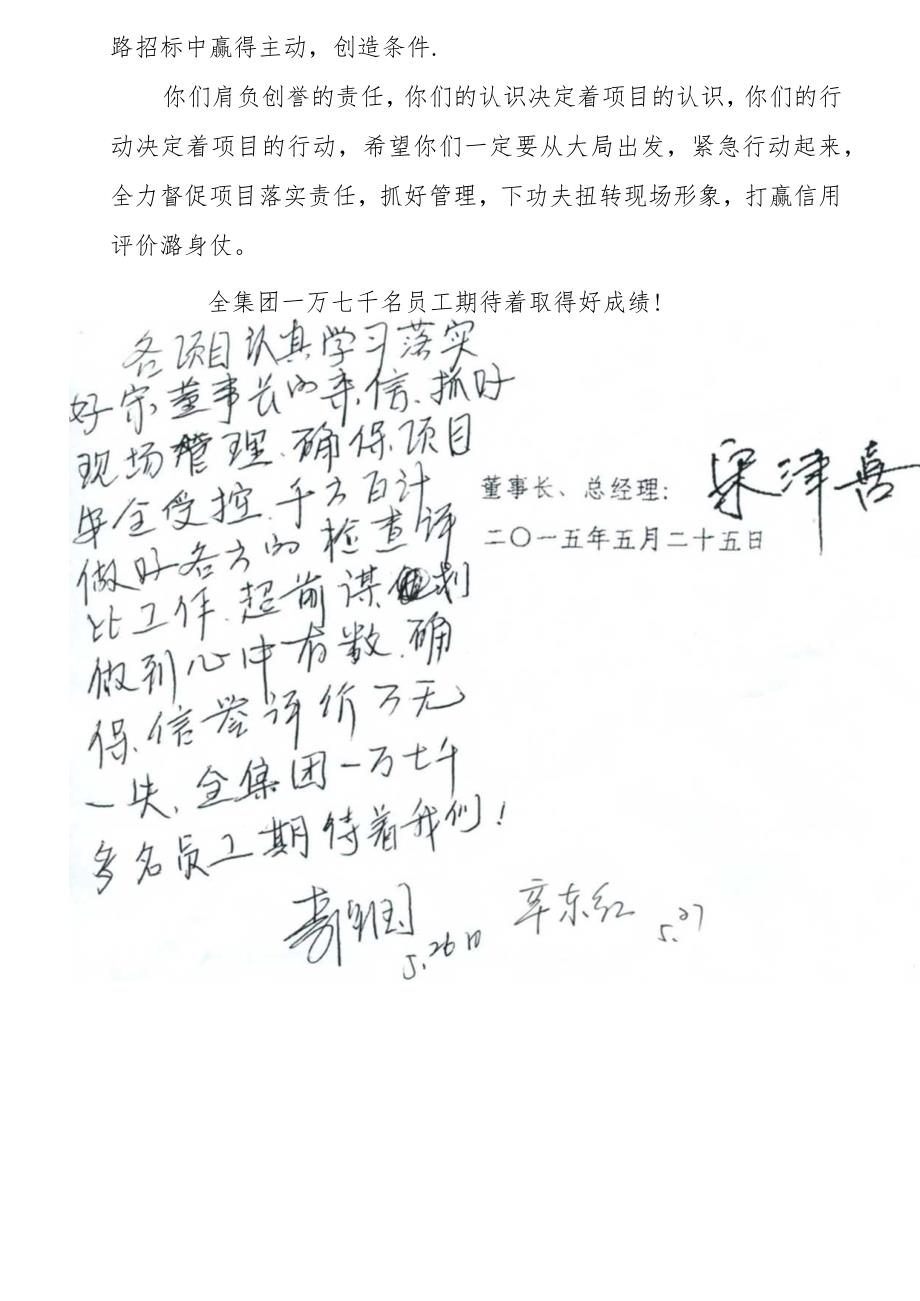 路招标中赢得主动，创造条件.
你们肩负创誉的责任，你们的认识决定着项目的认识，你们的行
动决定着项目的行动，希望你们一定要从大局出发，紧急行动起来，
全力督促项目落实责任，抓好管理，下功夫扭转现场形象，打赢信用
评价潞身仗。
全集团一万七千名员工期待着取得好成绩!
各项目认真学习落实
好宗董事长的来信、抓好
现场管理、确保项目
安全受控、千方百计
做好各方的检查评
比工作、超前谋划
做到心中有数、确
保信誉评价万无
一失、全集团一万七千
多名员工期待着我们!
董事长、总经理: 津喜
二〇一五年五月二十五日
5.26日
辛东红 5.27